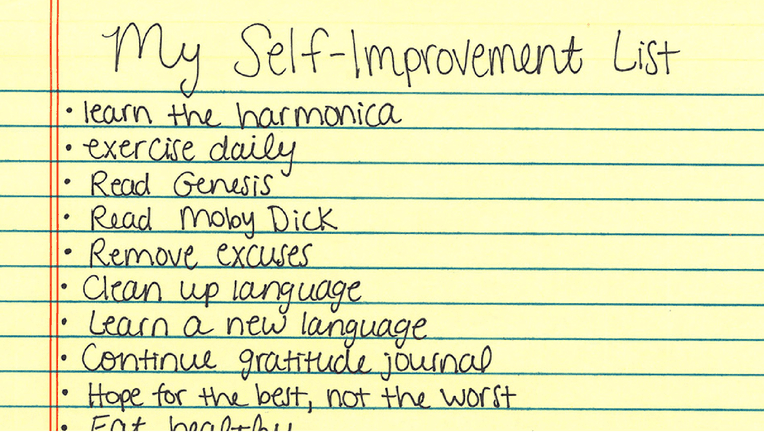 My Self-Improvement List
• learn the harmonica
• exercise daily
• Read Genesis
• Read Moby Dick
• Remove excuses
• Clean up language
• Learn a new language
• Continue gratitude journal
• Hope for the best, not the worst
• Eat healthy